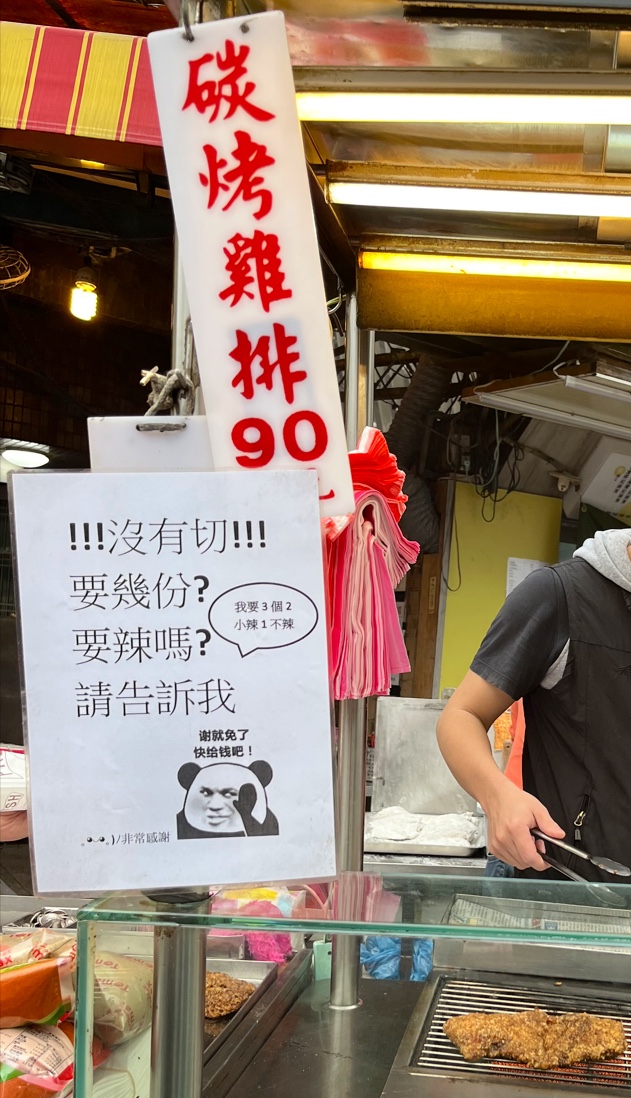 碳烤雞排90
!!!沒有切!!!
要幾份?
要辣嗎?
請告訴我
我要3個2
小辣1不辣
谢就免了
快给钱吧！
)/非常感謝